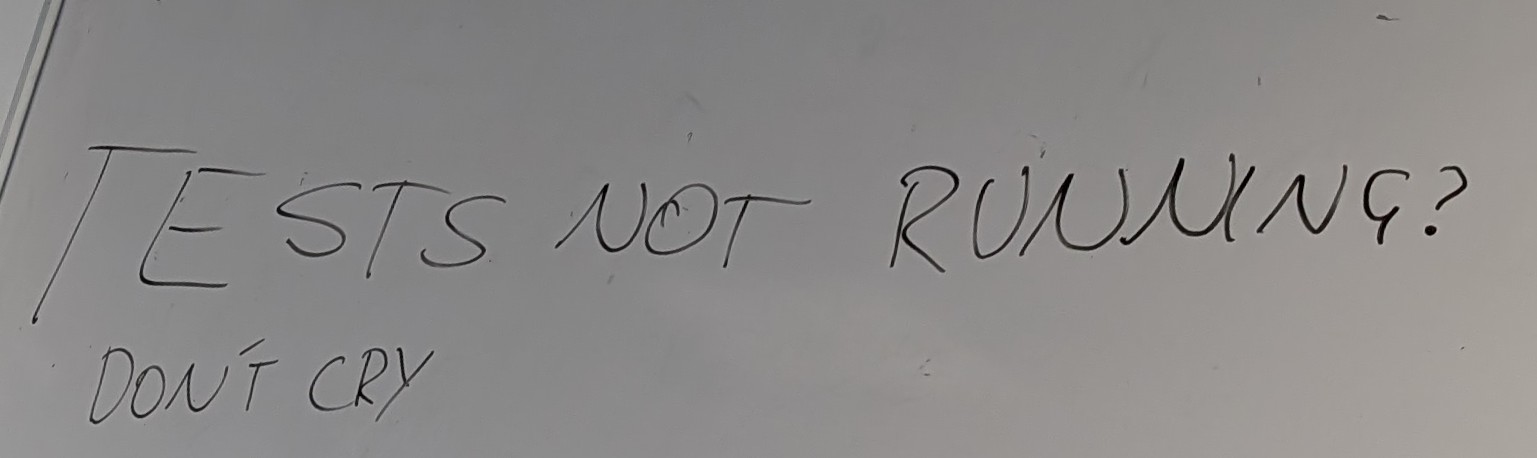 TESTS NOT RUNNING?
DON'T CRY